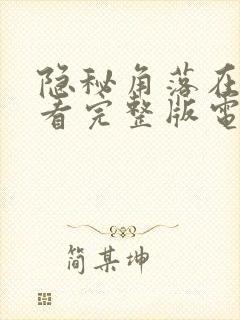 隐秘角落在
看完整版電
简某坤